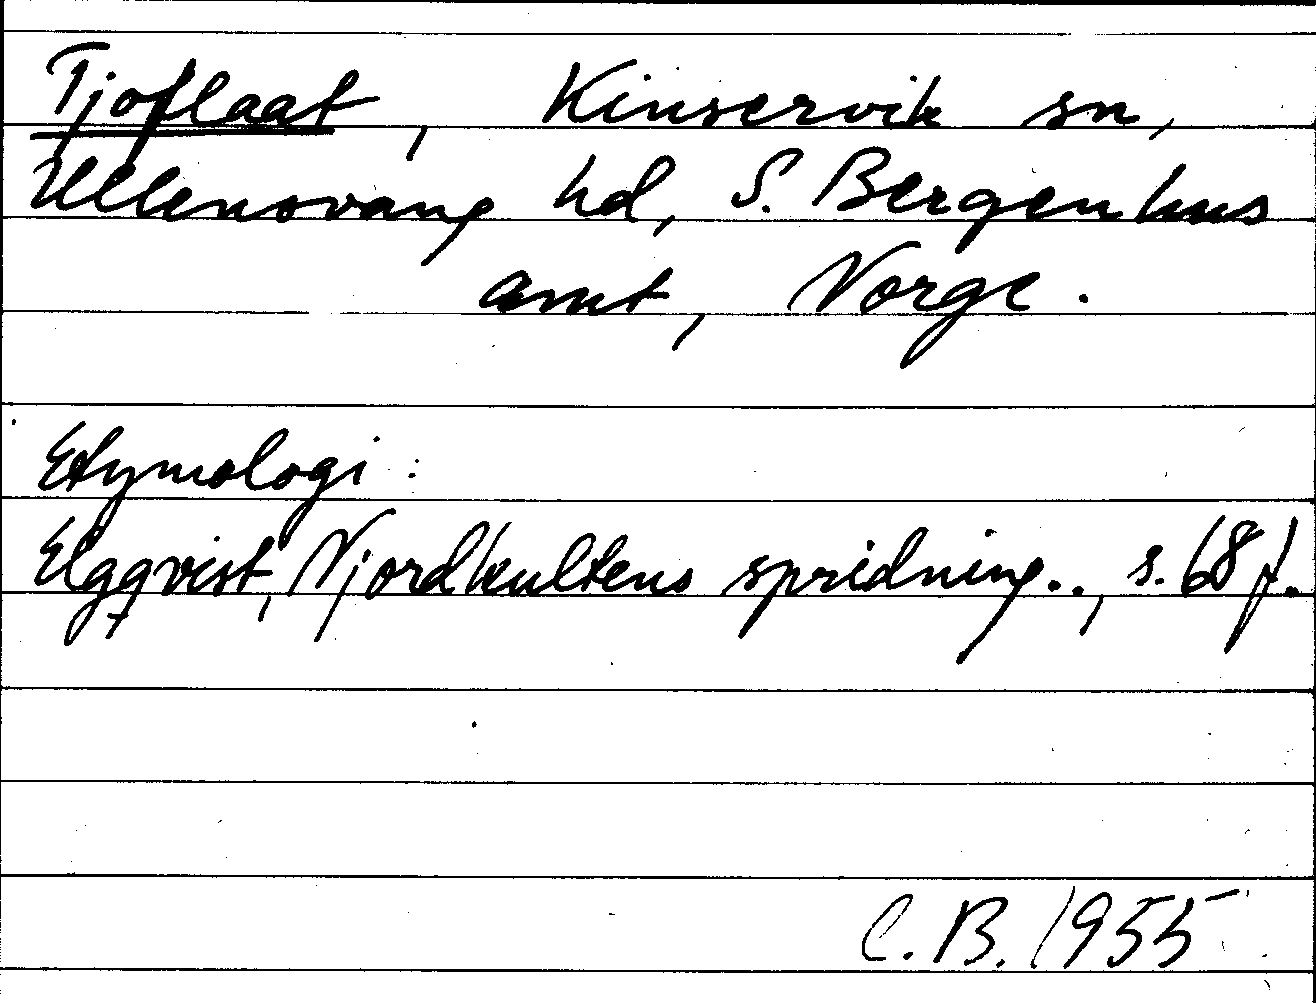 Tjoflaat, Kinservik sn,
Ullensvang hd, S. Bergenhus
amt, Norge.
Etymologi:
Elgqvist, Njordkultens spridning.., s. 68 f.
C.B. 1955